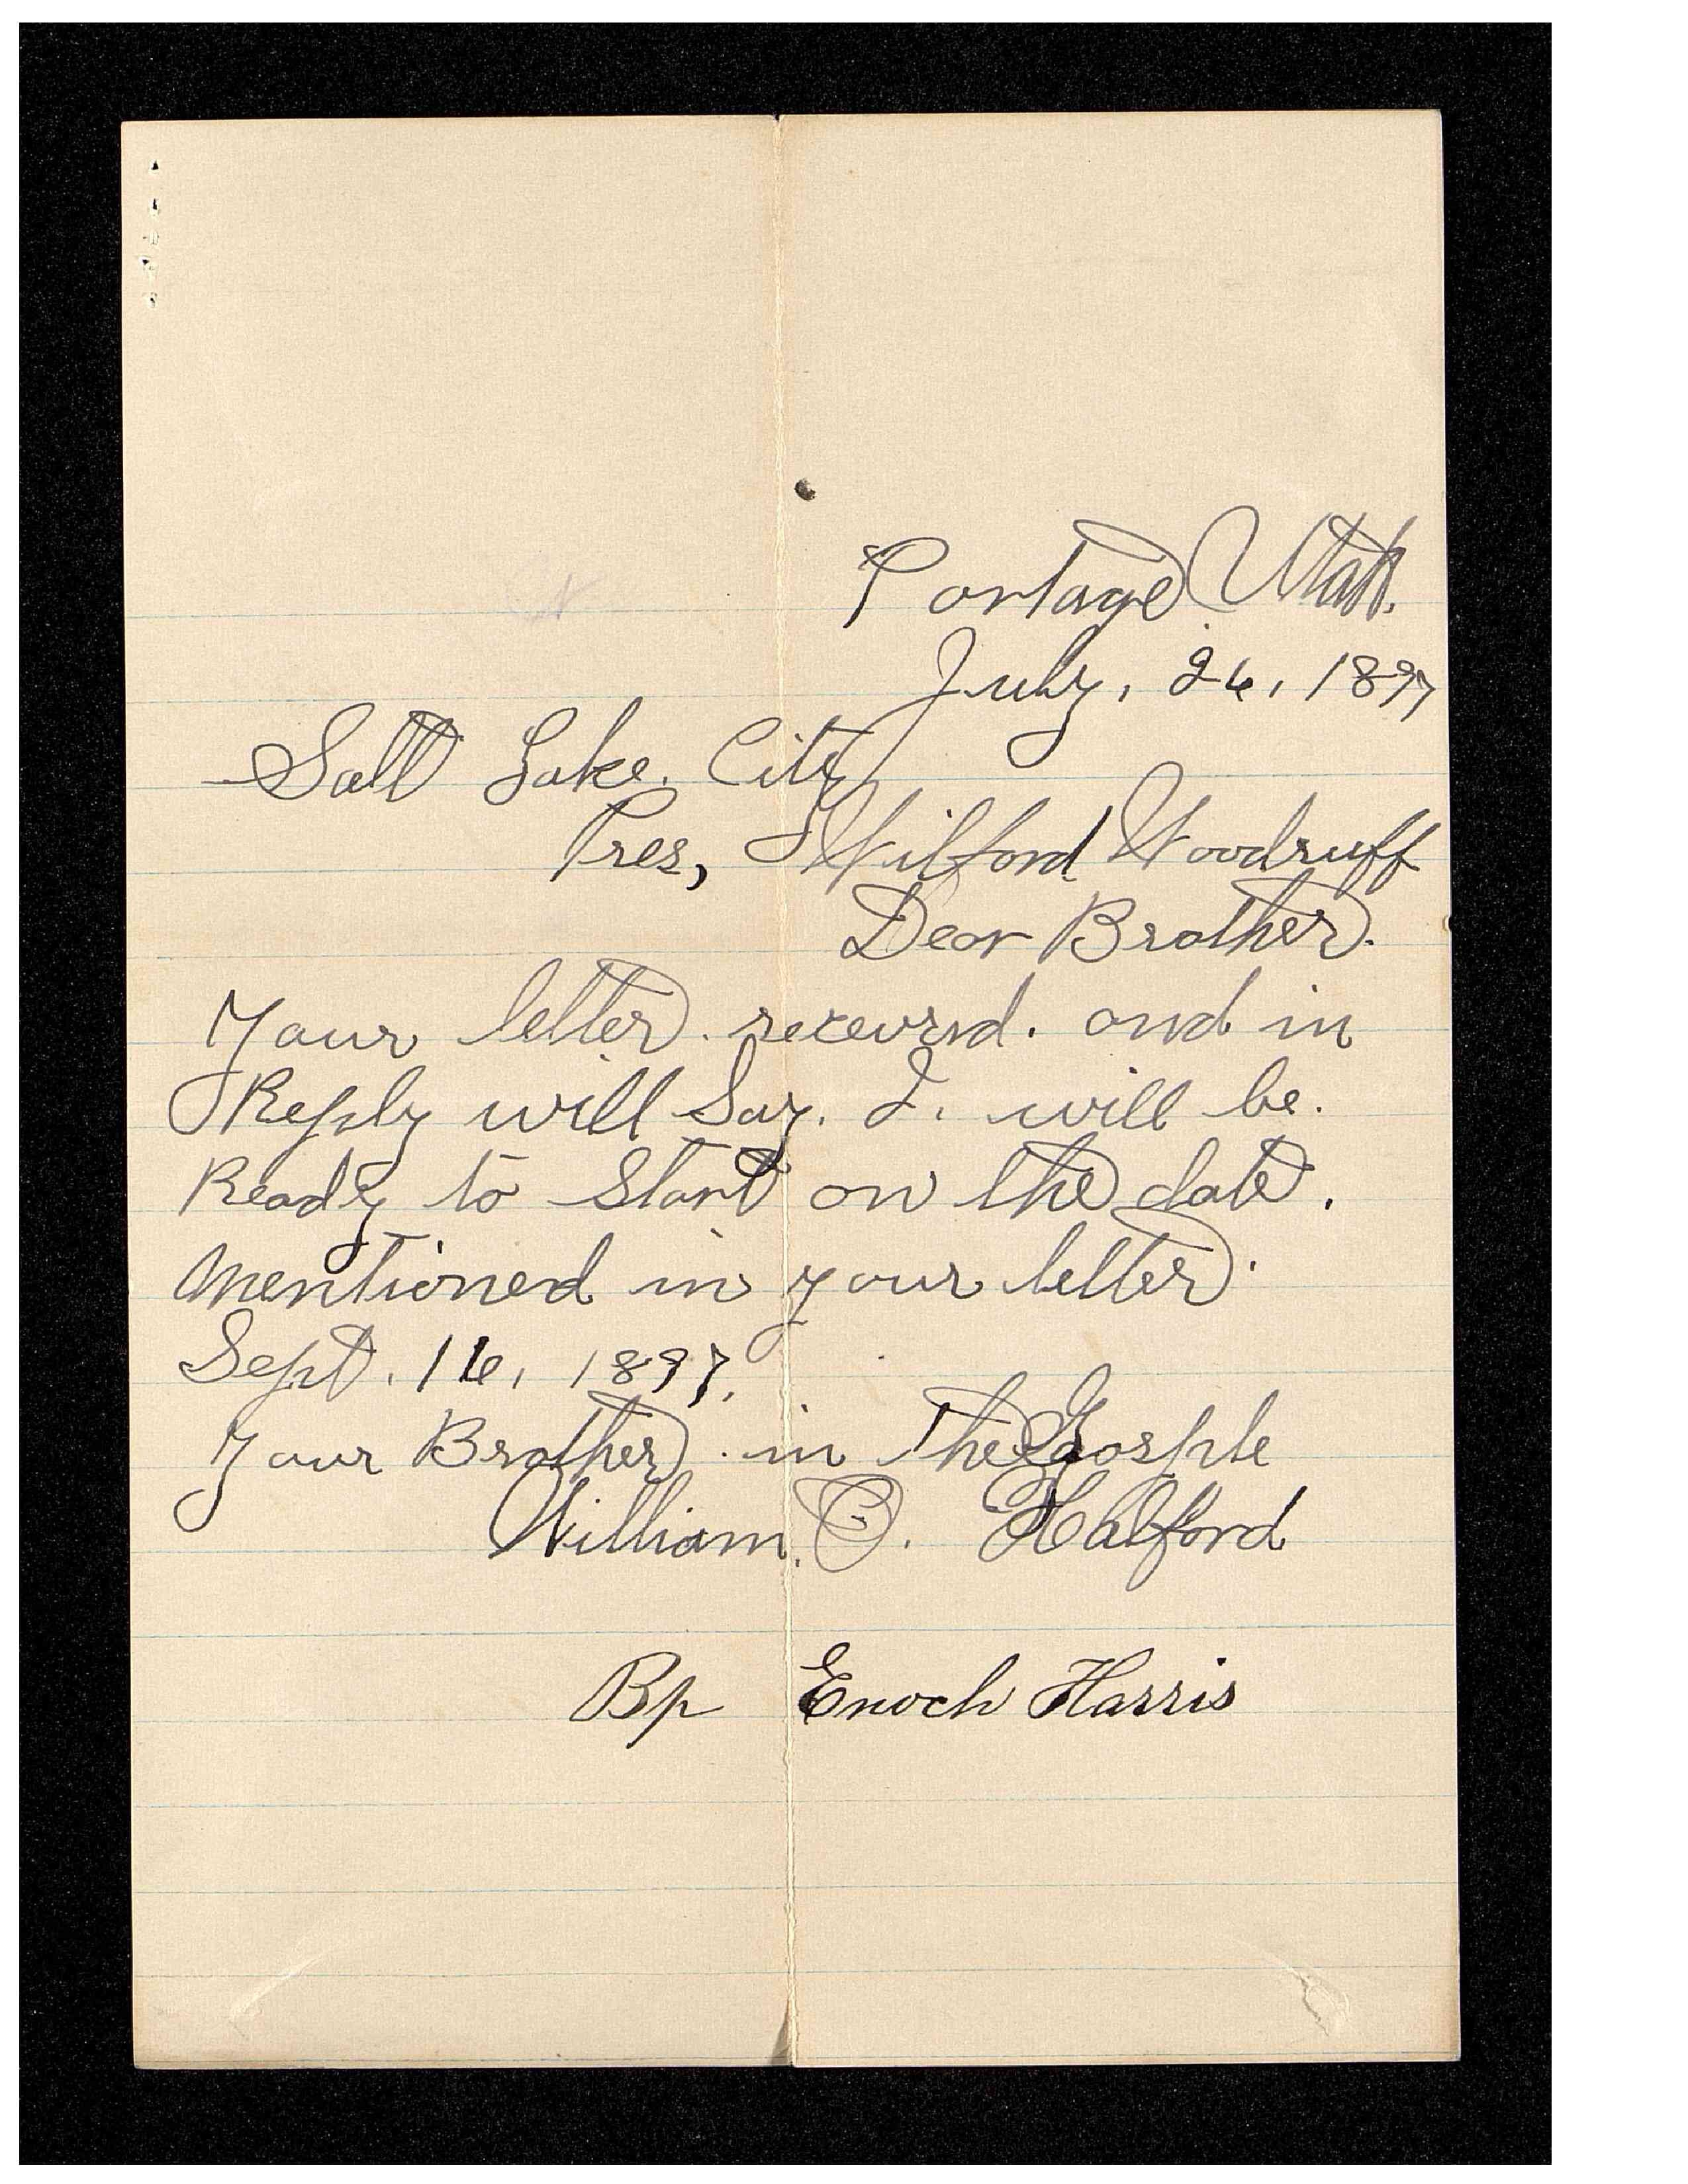 Portage Utah.
July, 26, 1897
Salt Lake. City
Pres, Wilford Woodruff
Dear Brother.
Your letter. receivid. and in
Reply will Say. I. will be.
Ready to Start on the date.
mentioned in your letter.
Sept. 16, 1897.
Your Brother. in the Gosple
William. O. Halford
Bp Enoch Harris